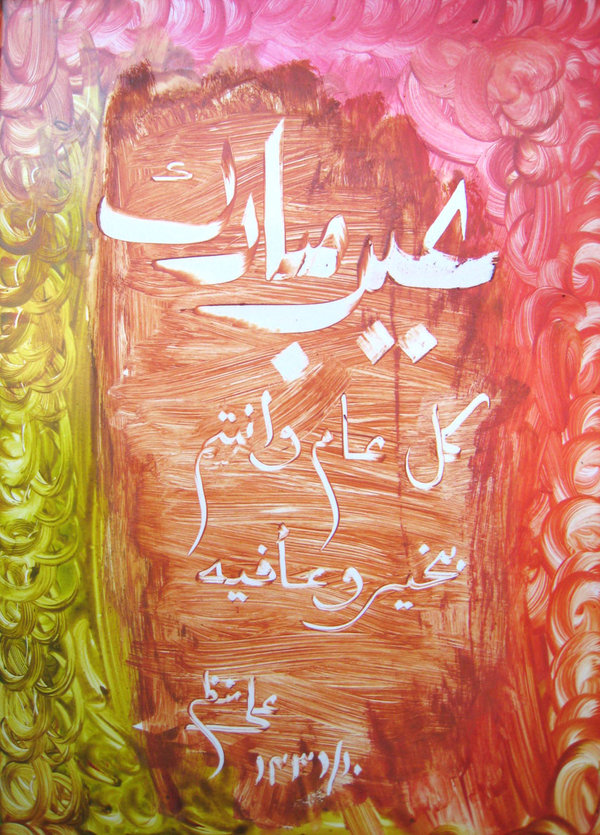 عيد مبارك
كل عام وانتم
بخير وعأفيه
علي
١٤٣١/١٠